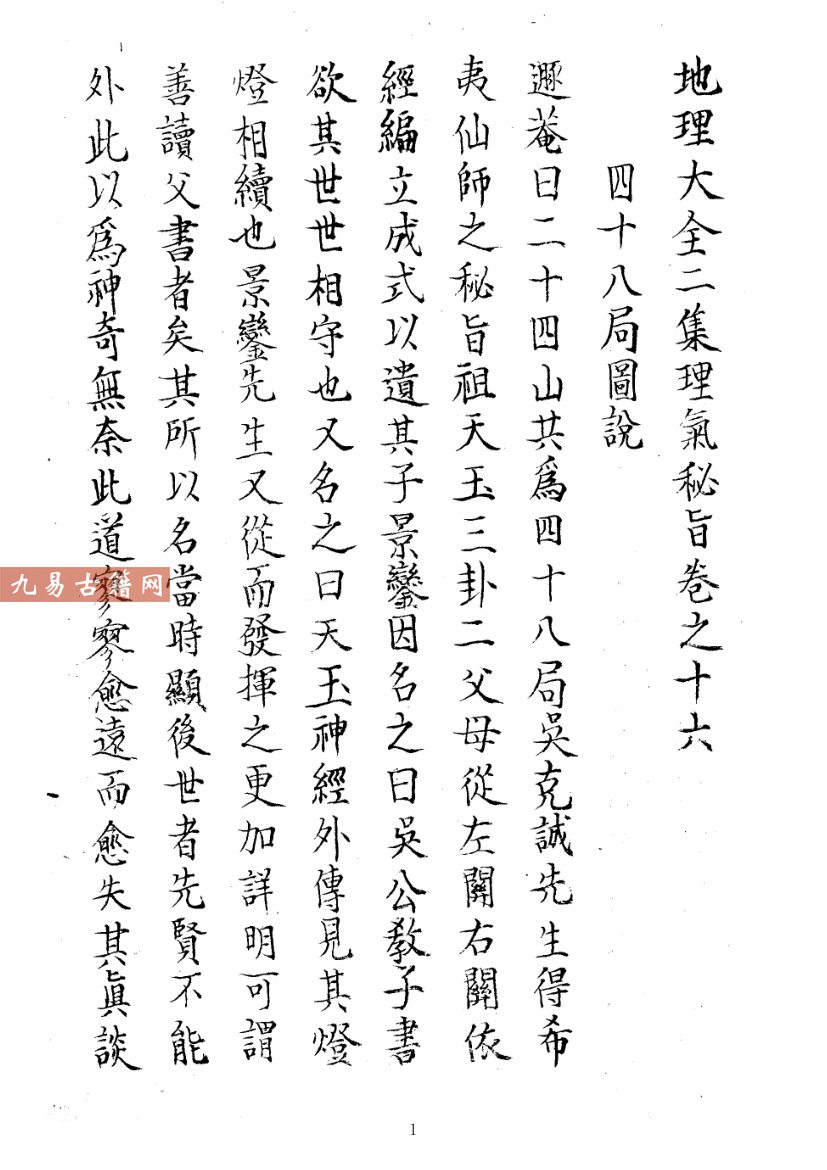 地理大全二集理氣秘旨卷之十六
四十八局圖說
遯菴曰二十四山共爲四十八局吳克誠先生得希
夷仙師之秘旨祖天玉三卦二父母從左關右關依
經編立成式以遺其子景鸞因名之曰吳公教子書
欲其世世相守也又名之曰天玉神經外傳見其燈
燈相續也景鸞先生又從而發揮之更加詳明可謂
善讀父書者矣其所以名當時顯後世者先賢不能
外此以爲神奇無奈此道寥寥愈遠而愈失其眞談
九易古籍网
1